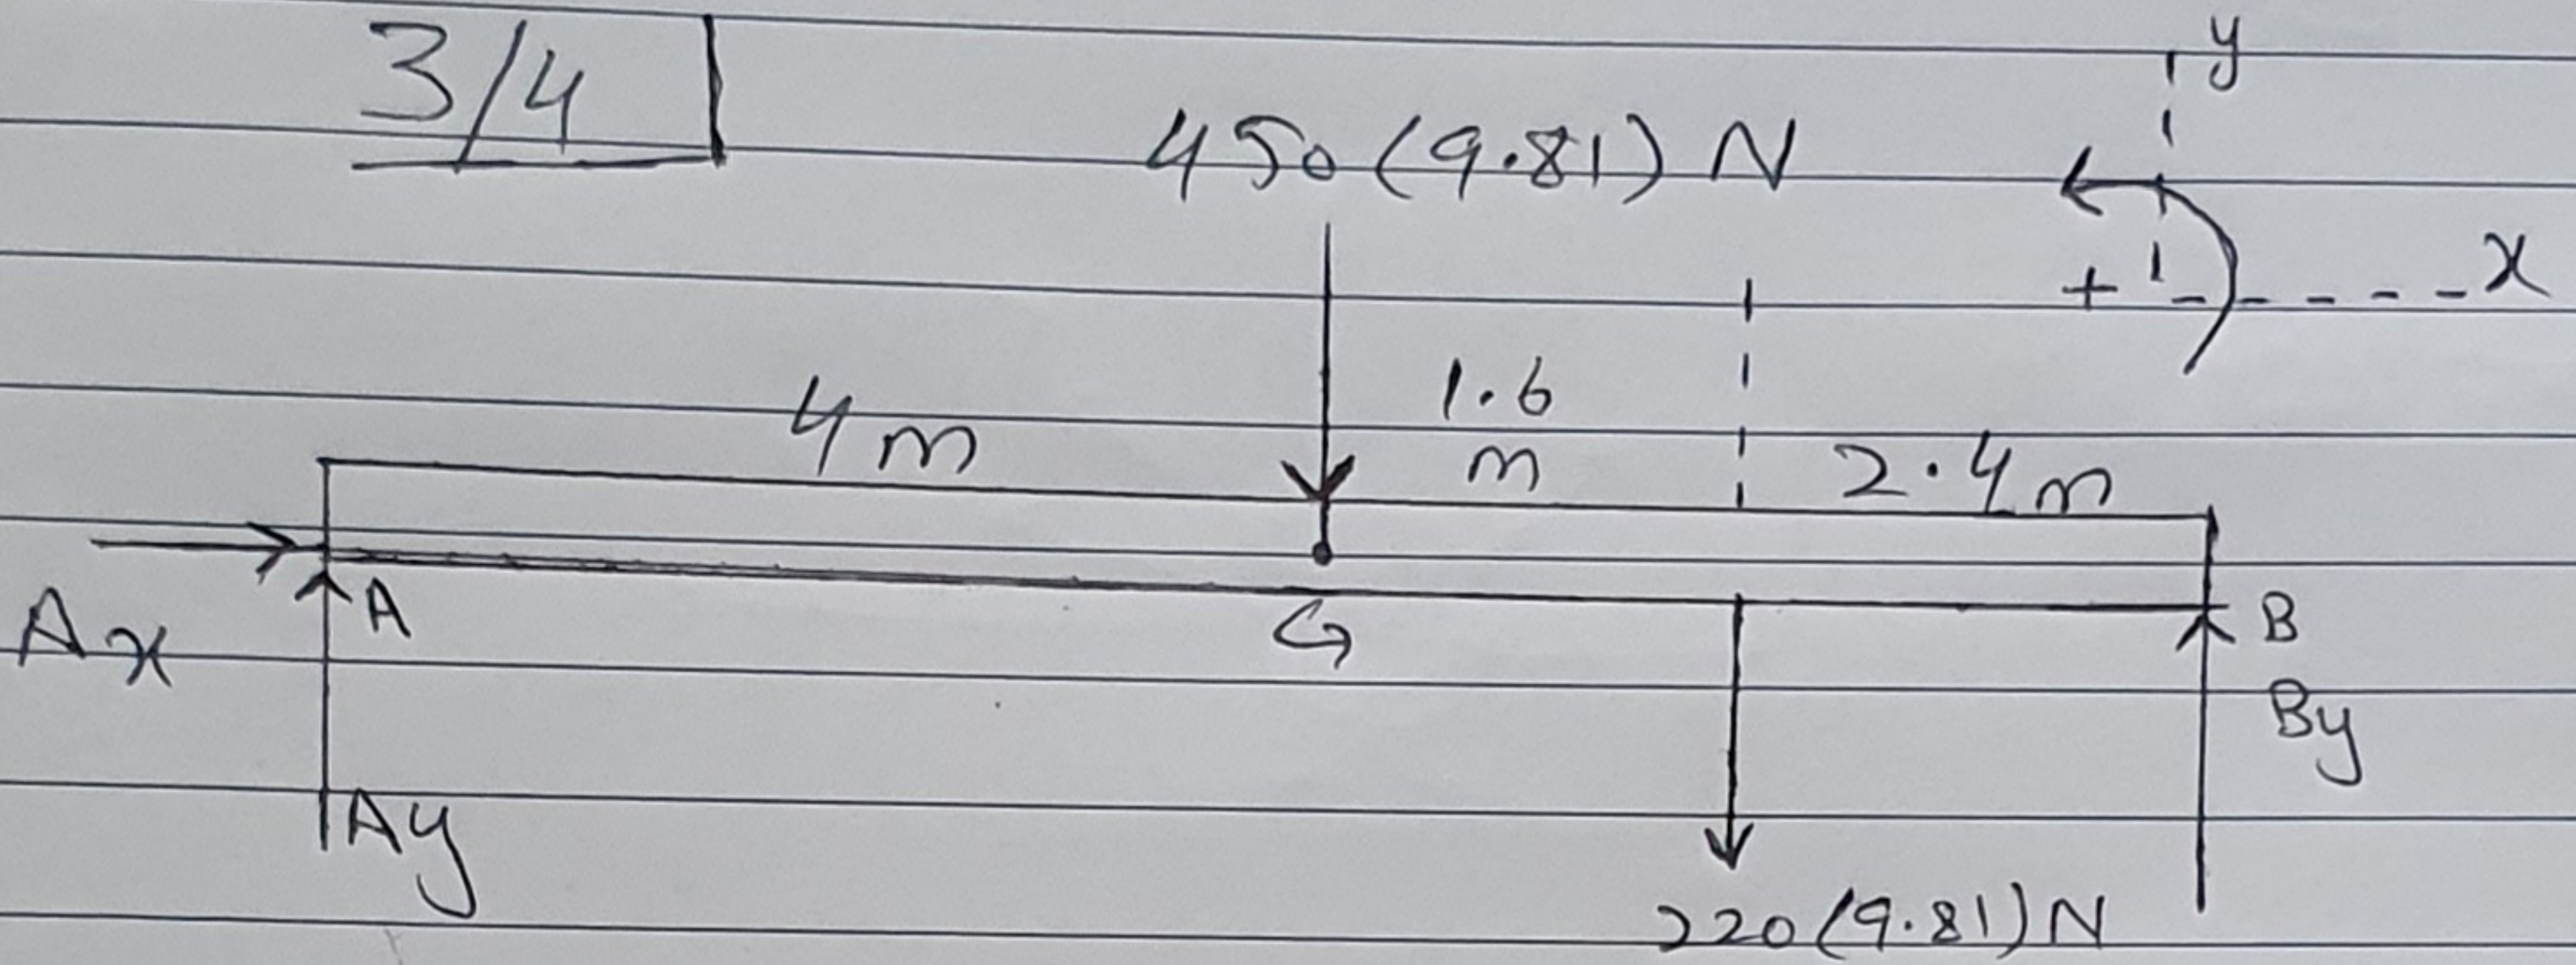 3/4
y
450(9.81) N
+ x
4m 1.6 m 2.4m
Ax A G B
By
Ay
220(9.81)N